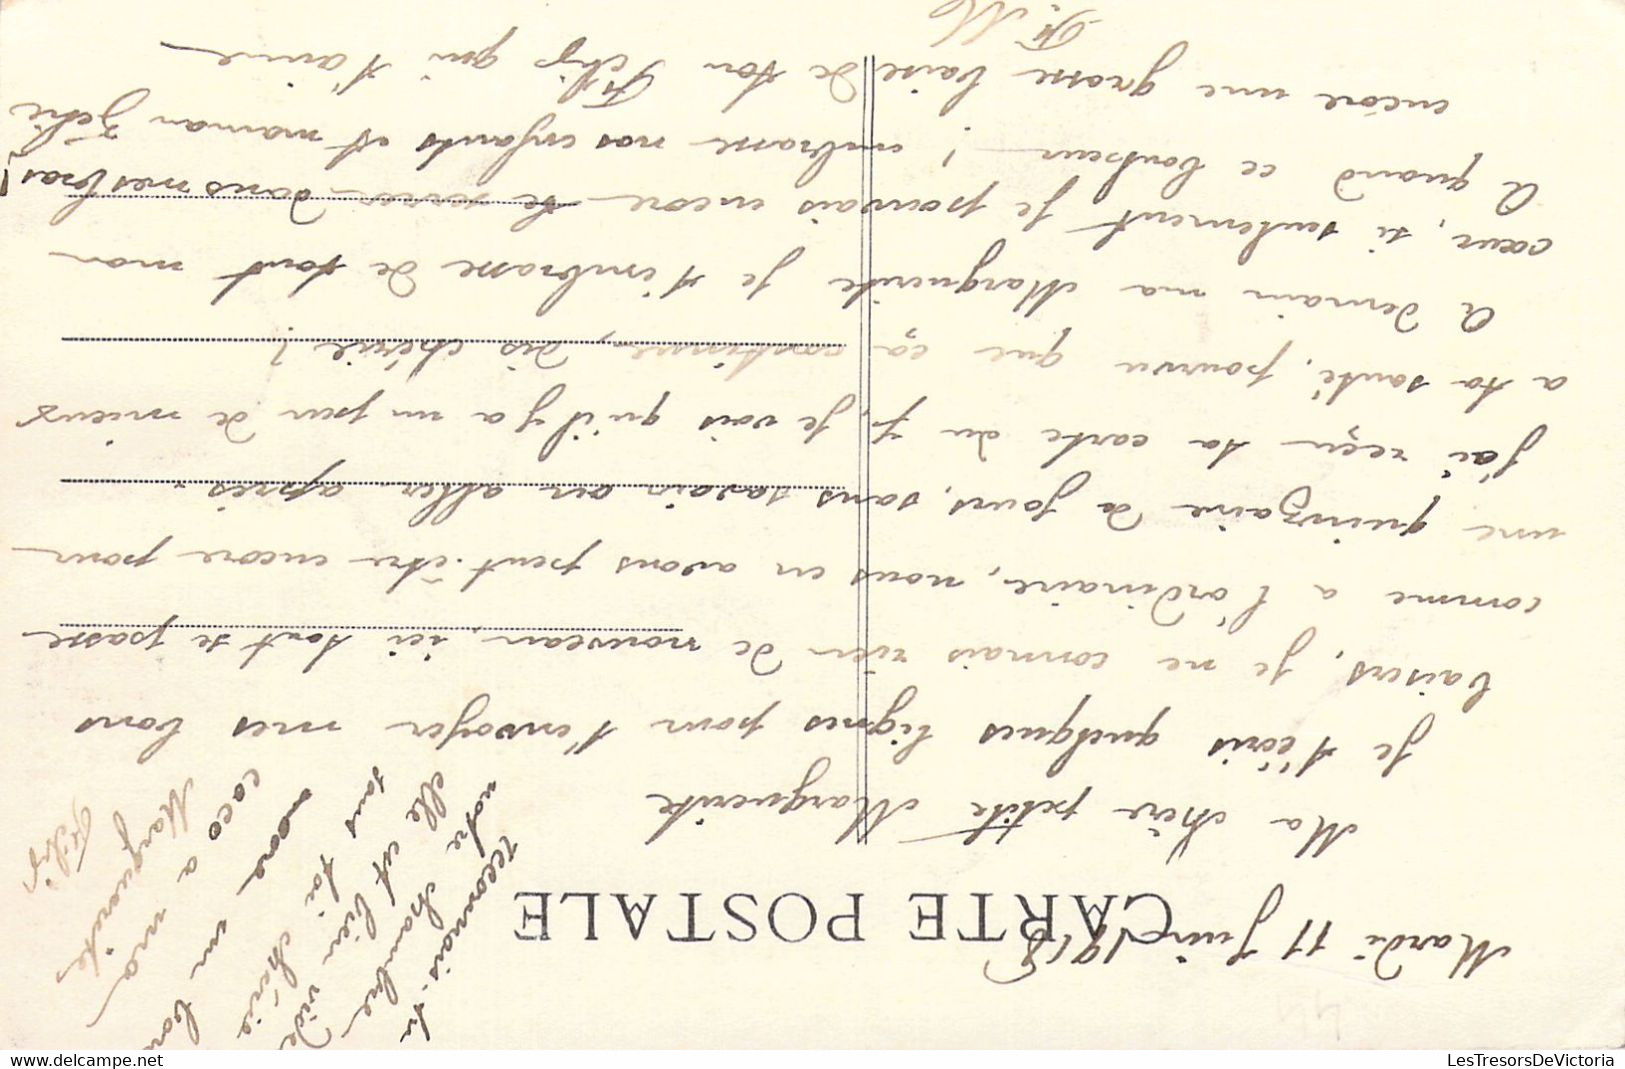 CARTE POSTALE
Mardi 11 Juin 1918
Ma chère petite Marguerite
Je t'écris quelques lignes pour t'envoyer mes bons
baisers, je ne connais rien de nouveau, ici tout se passe
comme a l'ordinaire, nous en avons peut-être encore pour
une quinzaine de jours, sans savoir ou aller après.
j'ai reçu ta carte du 7, je vois qu'il y a un peu de mieux
a ta santé, pourvu que ça continue, dis chérie !
A demain ma Marguerite je t'embrasse de tout mon
cœur, si seulement je pouvais encore te serrer dans mes bras !
A quand ce bonheur ! embrasse nos enfants et maman Zélie
encore une grosse baise de ton Félix qui t'aime
F. M
reconnais-tu
notre chambre
elle est bien vide
sans toi chérie
un
coco a ma
Marguerite
Félix
LesTresorsDeVictoria